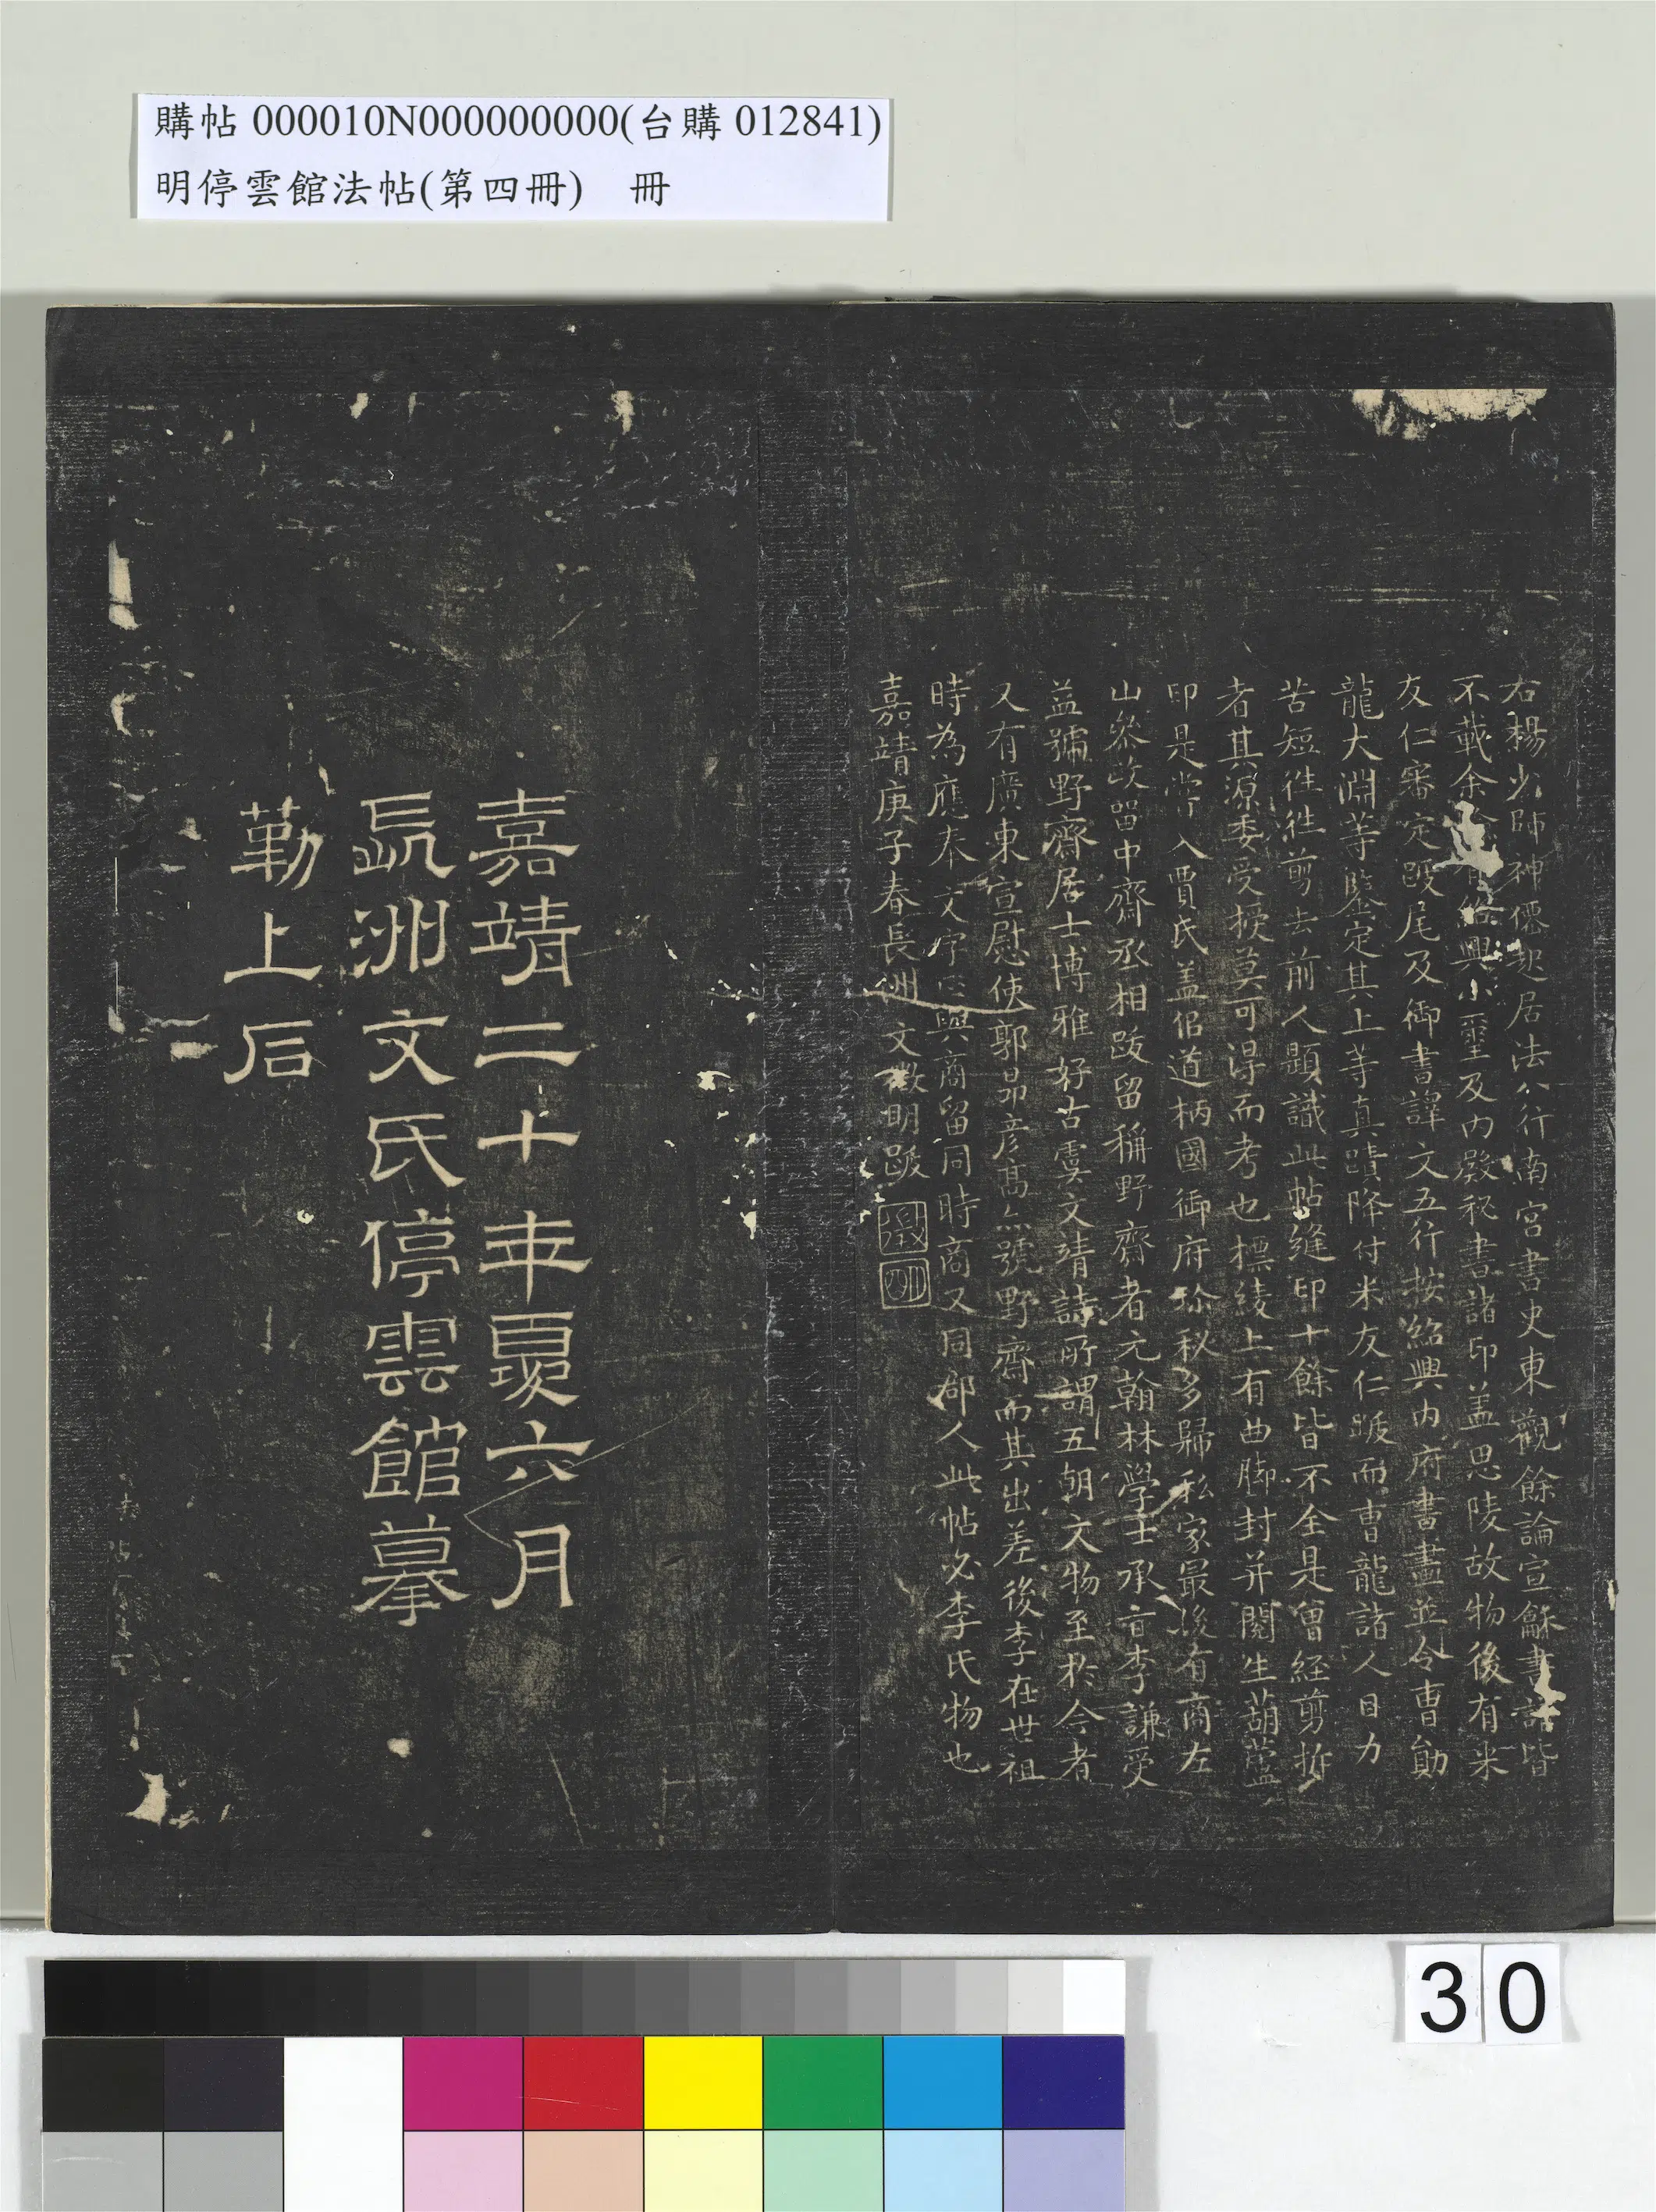 購帖 000010N000000000(台購 012841)
明停雲館法帖(第四冊) 冊
右楊少師神僊起居法八行南宮書史東觀餘論宣龢書譜皆
不載余 紹興小璽及內殿秘書諸印盖思陵故物後有米
友仁審定跋尾及御書譯文五行按紹興內府書畫並令曹勛
龍大淵等鑒定其上等真蹟降付米友仁跋而曹龍諸人目力
苦短往往剪去前人題識此帖縫印十餘皆不全是曾經剪拆
者其源委受授莫可得而考也標綾上有曲脚封并閱生葫蘆
印是嘗入賈氏盖侂道柄國御府珍秘多歸私家最後有商左
山叅政留中齋丞相跋留稱野齋者元翰林學士承旨李謙受
益號野齋居士博雅好古虞文靖詩所謂五朝文物至於今者
又有廣東宣慰使郭昂彦高亦號野齋而其出差後李在世祖
時為應奉文字正與商留同時商又同郡人此帖必李氏物也
嘉靖庚子春長洲文徵明跋
徵
明
嘉靖二十年夏六月
長洲文氏停雲館摹
勒上石
30